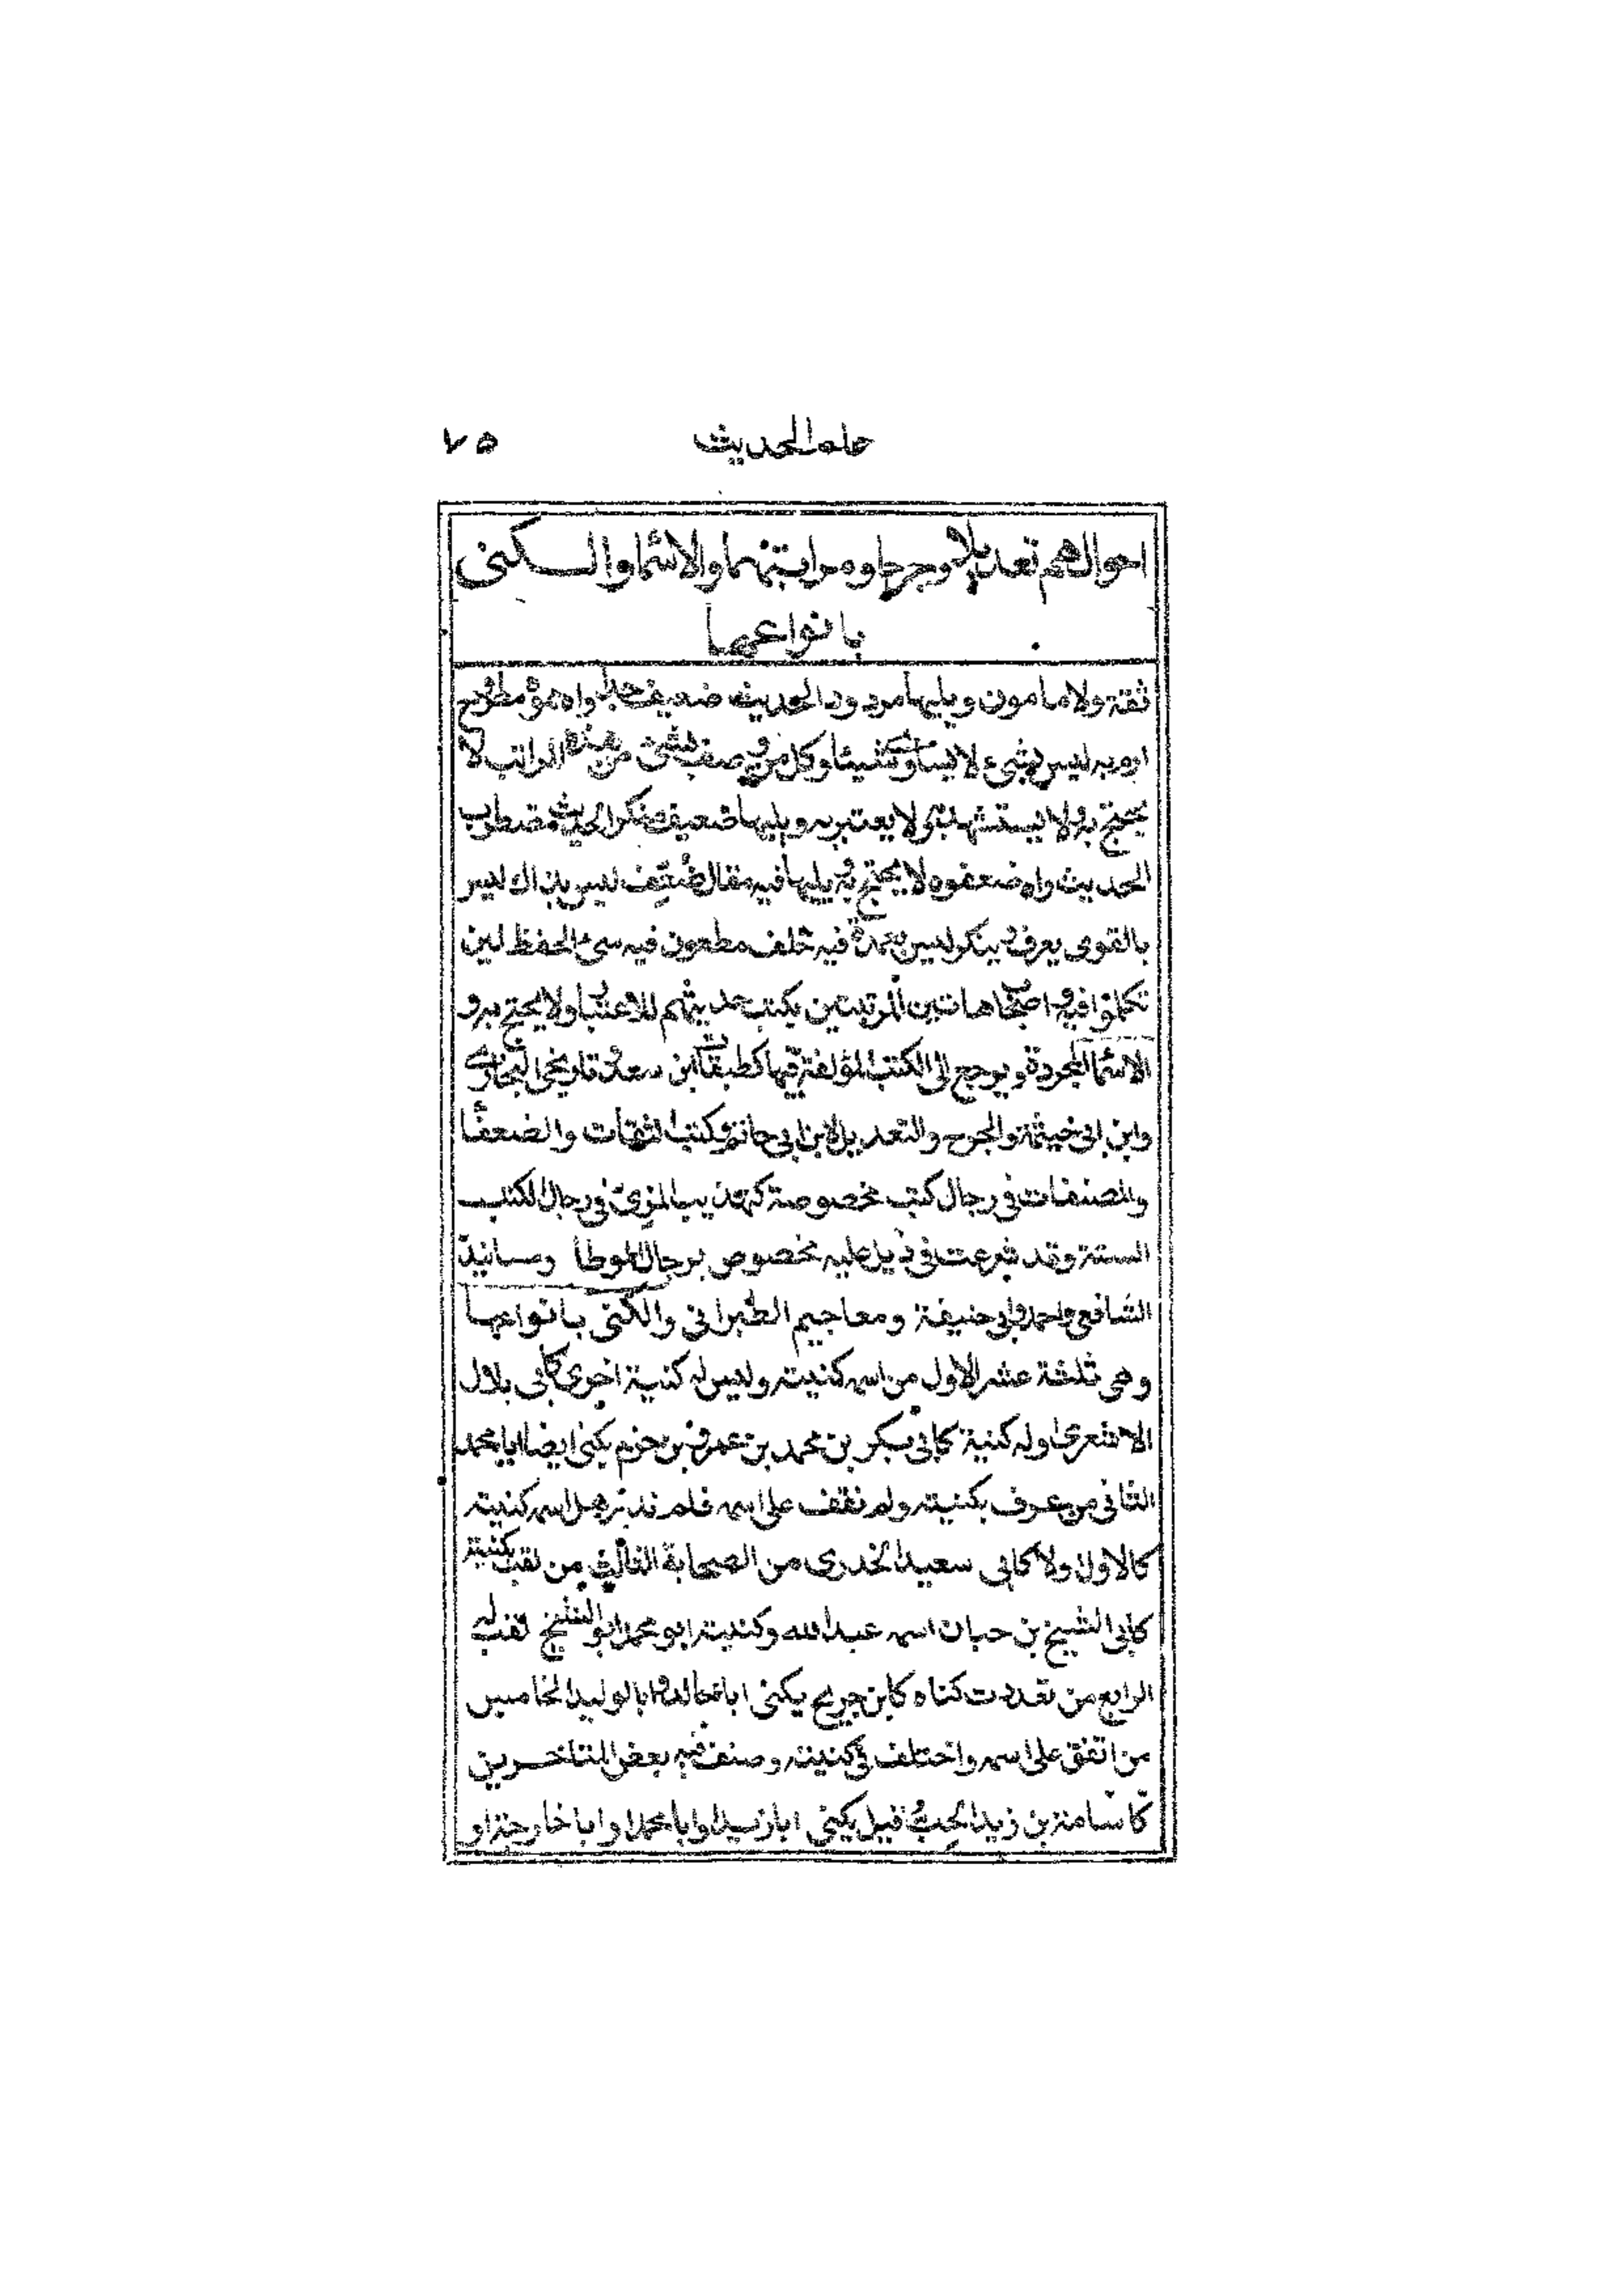 علم الحديث ٧٥
احوالهم تعديلا وجرحا ومراتبهما والاسما والكنى
بانواعها
ثقة ولا مامون ويليها مردود الحديث ضعيف جدا واه بمرة مطروح
ارم به ليس بشيء لا يساوى شيئا وكل من وصف بشئ من هذه المراتب لا
يحتج به ولا يستشهد به ولا يعتبر به ويليها ضعيف منكر الحديث مضطرب
الحديث واه ضعفوه لا يحتج به ويليها فيه مقال ضعف ليس بذاك ليس
بالقوى يعرف وينكر ليس بعمدة فيه خلف مطعون فيه سئ الحفظ لين
تكلموا فيه واصحاب هاتين المرتبتين يكتب حديثهم للاعتبار ولا يحتج به و
الاسما المجردة ويرجع الى الكتب المؤلفة فيها كطبقات ابن سعد وتاريخى البخارى
وابن ابى خيثمة والجرح والتعديل لابن ابى حاتم وكتب الثقات والضعفا
والمصنفات فى رجال كتب مخصوصة كتهذيب المزى فى رجال الكتب
الستة وقد شرعت فى ذيل عليه مخصوص برجال الموطا ومسانيد
الشافعى واحمد وابى حنيفة ومعاجيم الطبرانى والكنى بانواعها
وهى ثلثة عشر الاول من اسمه كنيته وليس له كنية اخرى كابى بلال
الاشعرى او له كنية كابى بكر بن محمد بن عمرو بن حزم يكنى ايضا ابا محمد
الثانى من عرف بكنيته ولم نقف على اسمه فلم ندر هل اسمه كنيته
كالاول اولا كابى سعيد الخدرى من الصحابة الثالث من لقب بكنيته
كابى الشيخ بن حبان اسمه عبد الله وكنيته ابو محمد ابو الشيخ لقب له
الرابع من تعددت كناه كابن جريج يكنى ابا خالد وابا الوليد الخامس
من اتفق على اسمه واختلف فى كنيته وصنف فيه بعض المتاخرين
كاسامة بن زيد الحب قيل يكنى ابا زيد او ابا محمد او ابا خارجة او